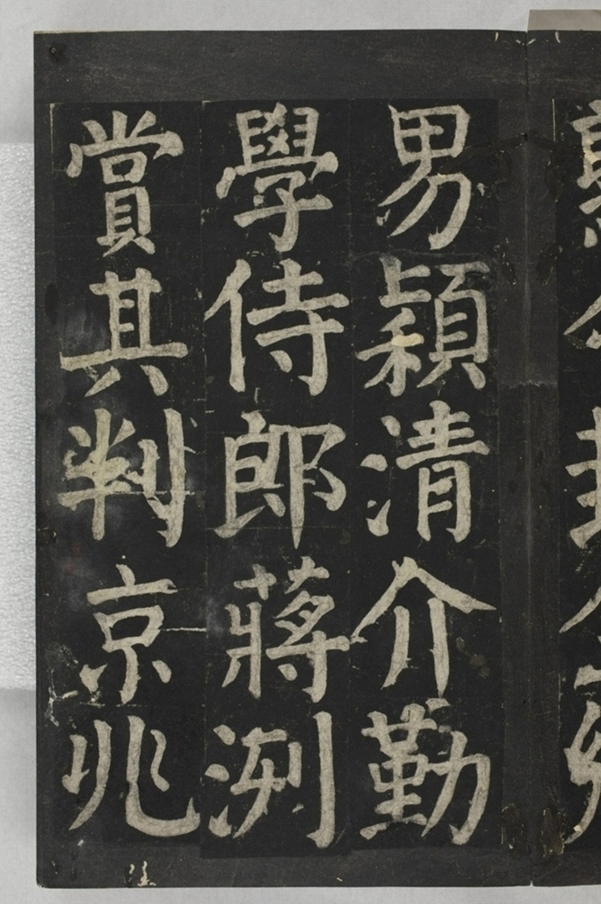 男頴清介勤
學侍郎蔣洌
賞其判京兆